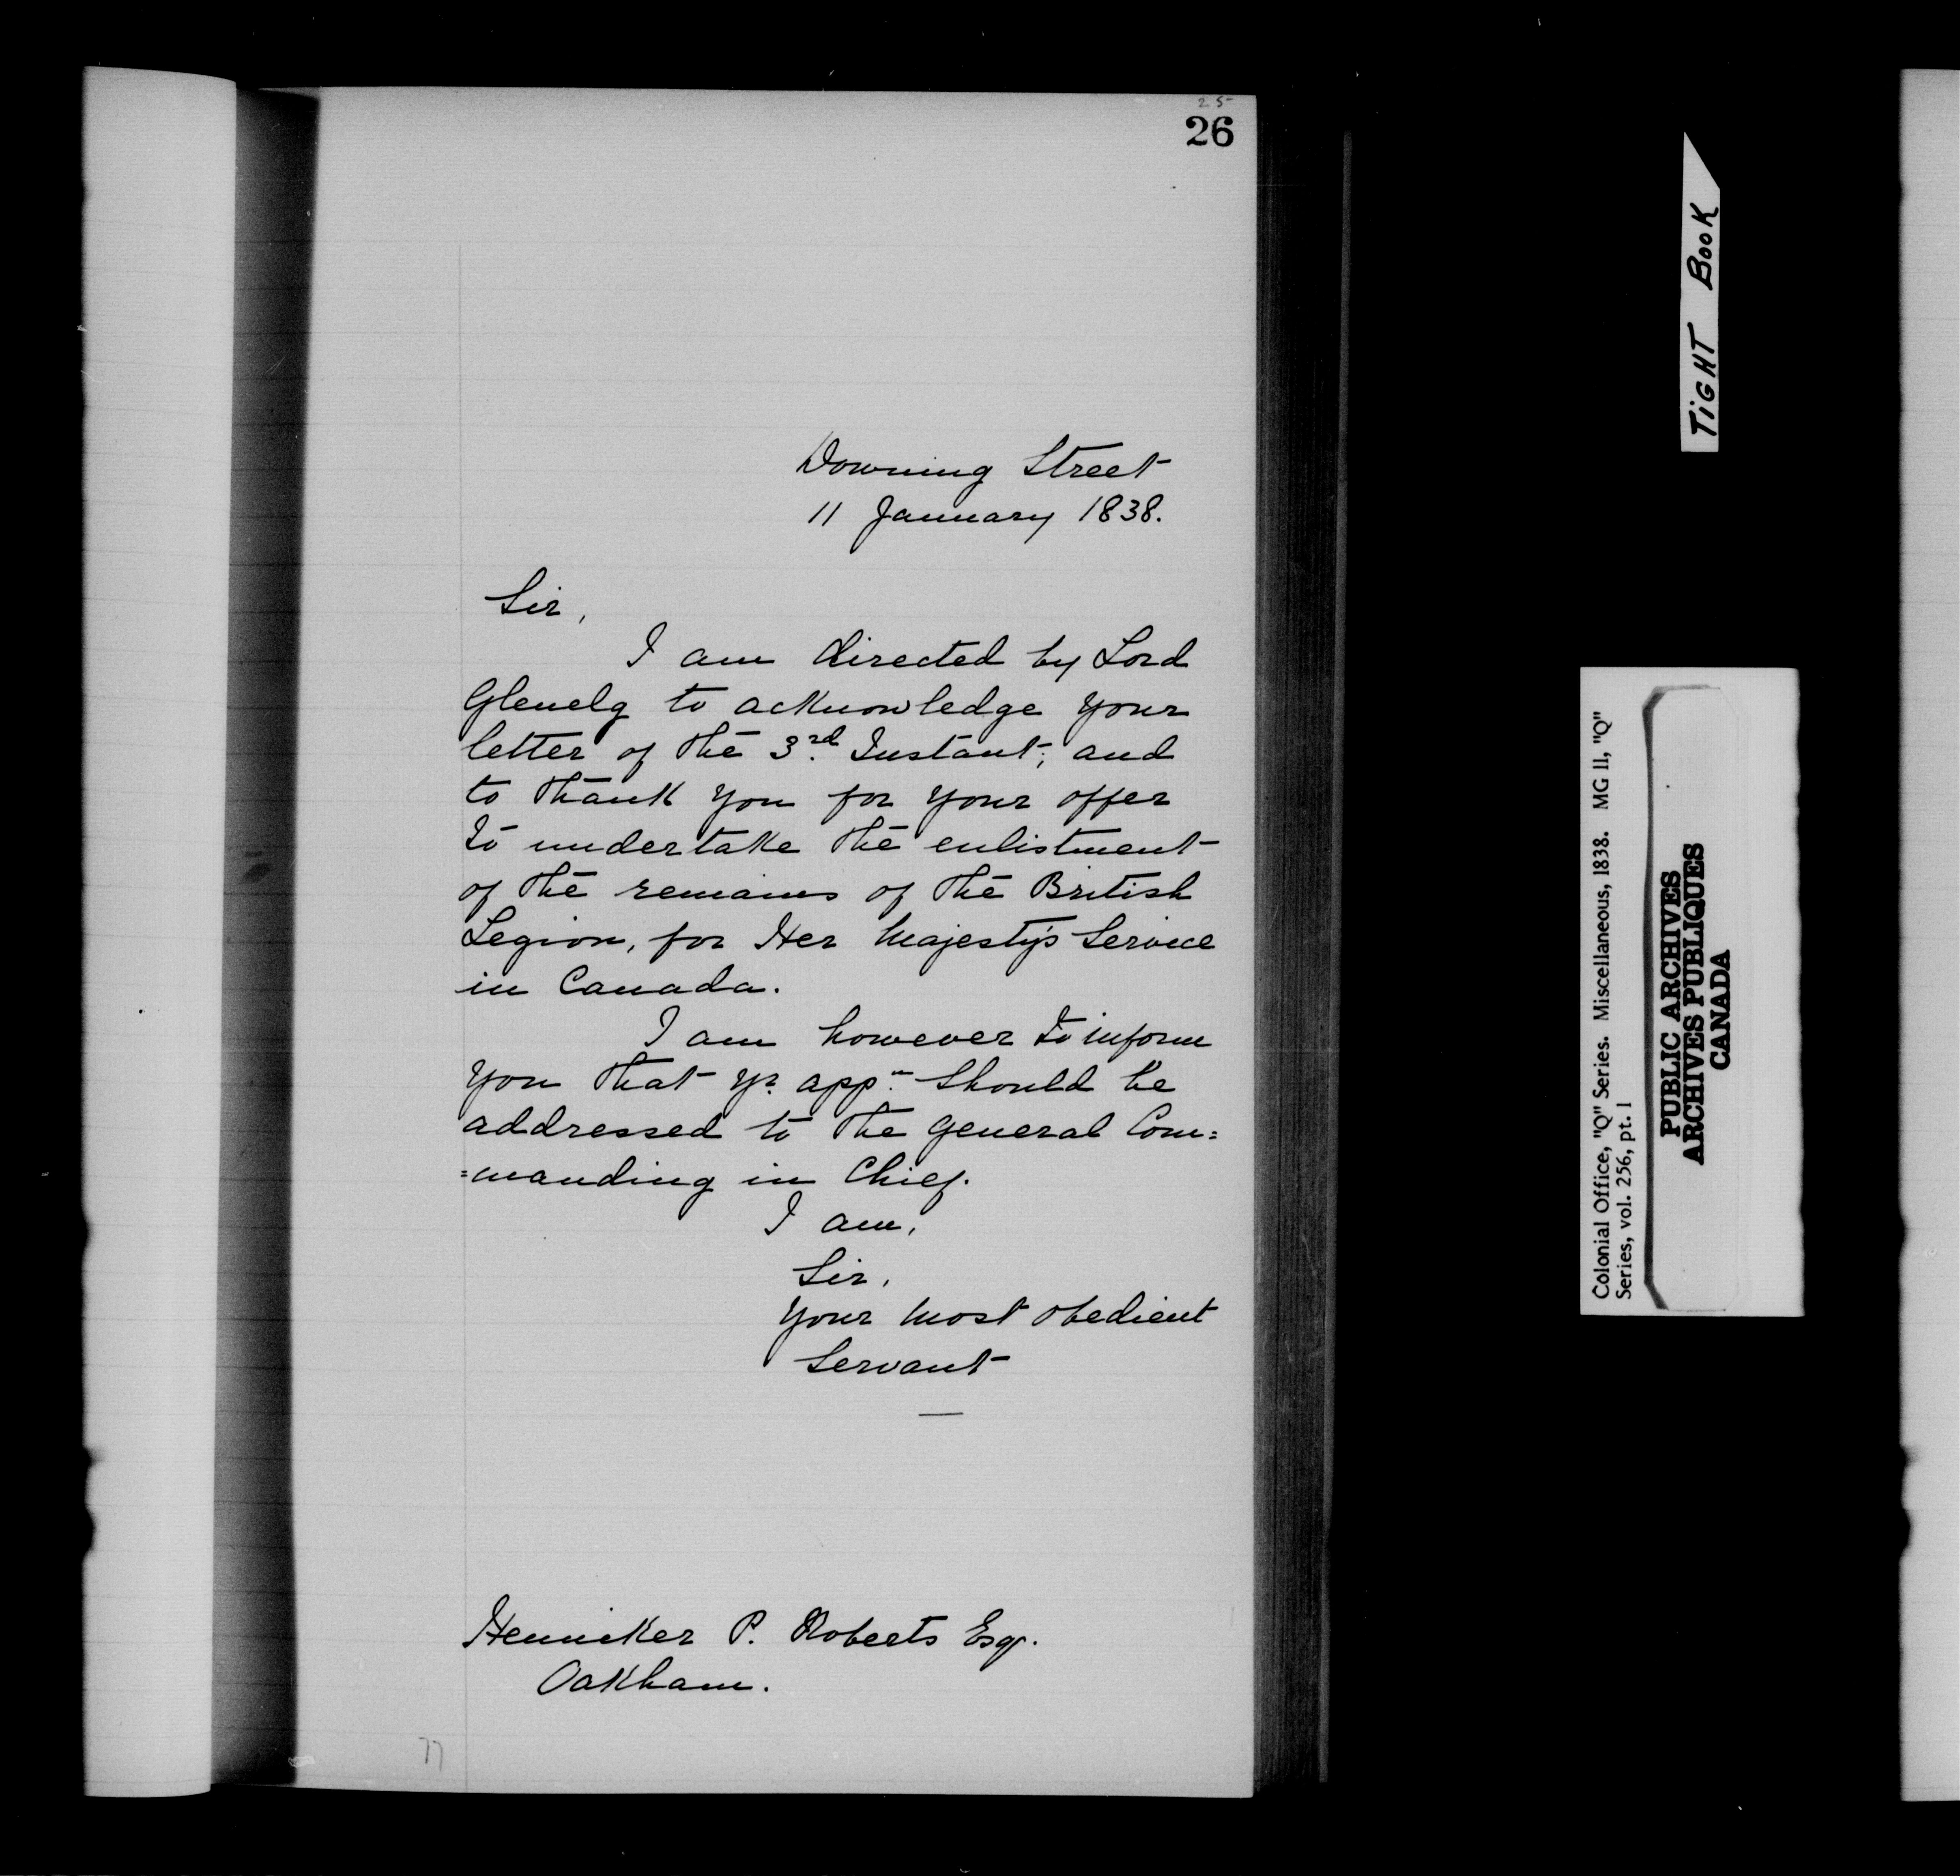 25
26
Downing Street
11 January 1838.
Sir,
I am directed by Lord
Glenelg to acknowledge your
letter of the 3rd. Instant; and
to thank you for your offer
to undertake the enlistment
of the remains of the British
Legion, for Her Majesty's Service
in Canada.
I am however to inform
you that yr. appn. should be
addressed to the General Com=
=manding in Chief.
I am,
Sir,
Your most obedient
Servant
Henniker P. Roberts Esqr.
Oakham.
77
TIGHT BOOK
Colonial Office, "Q" Series. Miscellaneous, 1838. MG 11, "Q"
Series, vol. 256, pt. 1
PUBLIC ARCHIVES
ARCHIVES PUBLIQUES
CANADA